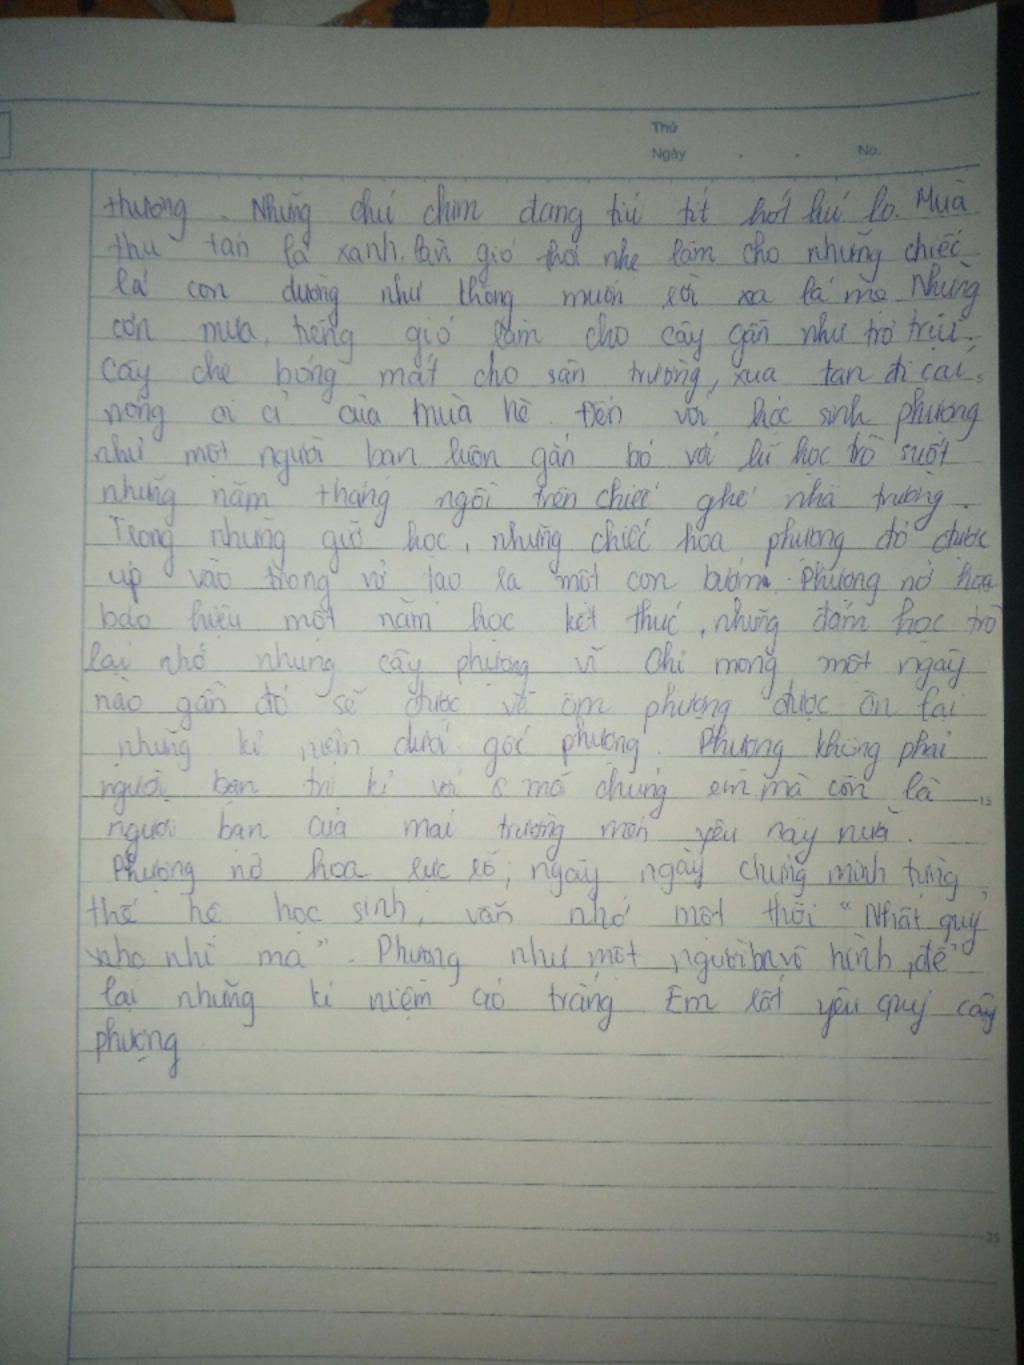 Thứ
Ngày . . No.
thương. Những chú chim đang tíu tít hót líu lo. Mùa
thu tán lá xanh. làn gió thổi nhẹ làm cho những chiếc
lá con dường như không muốn rời xa lá mẹ. Những
cơn mưa, tiếng gió làm cho cây gần như trơ trụi.
Cây che bóng mát cho sân trường, xua tan đi cái
nóng oi ả của mùa hè. Đến với học sinh phương
như một người bạn luôn gắn bó với lũ học trò suốt
những năm tháng ngồi trên chiếc ghế nhà trường.
Trong những giờ học, những chiếc hoa phương đó được
ụp vào trong vở tạo ra một con bướm. Phương nở hoa
báo hiệu một năm học kết thúc, những đám học trò
lại nhớ nhung cây phượng vĩ. Chỉ mong một ngày
nào gần đó sẽ được về ôm phượng được ôn lại
những kỉ niệm dưới gốc phương. Phương không phải
người bạn tri kỉ với mỗi chúng em mà còn là
15
người bạn của mái trường mến yêu này nữa.
Phượng nở hoa rực rỡ, ngày ngày chứng minh từng
thế hệ học sinh, vẫn nhớ một thời "Nhất quỷ
nhì ma". Phương như một người vô hình, để
lại những kỉ niệm áo trắng. Em rất yêu quý cây
phượng
25